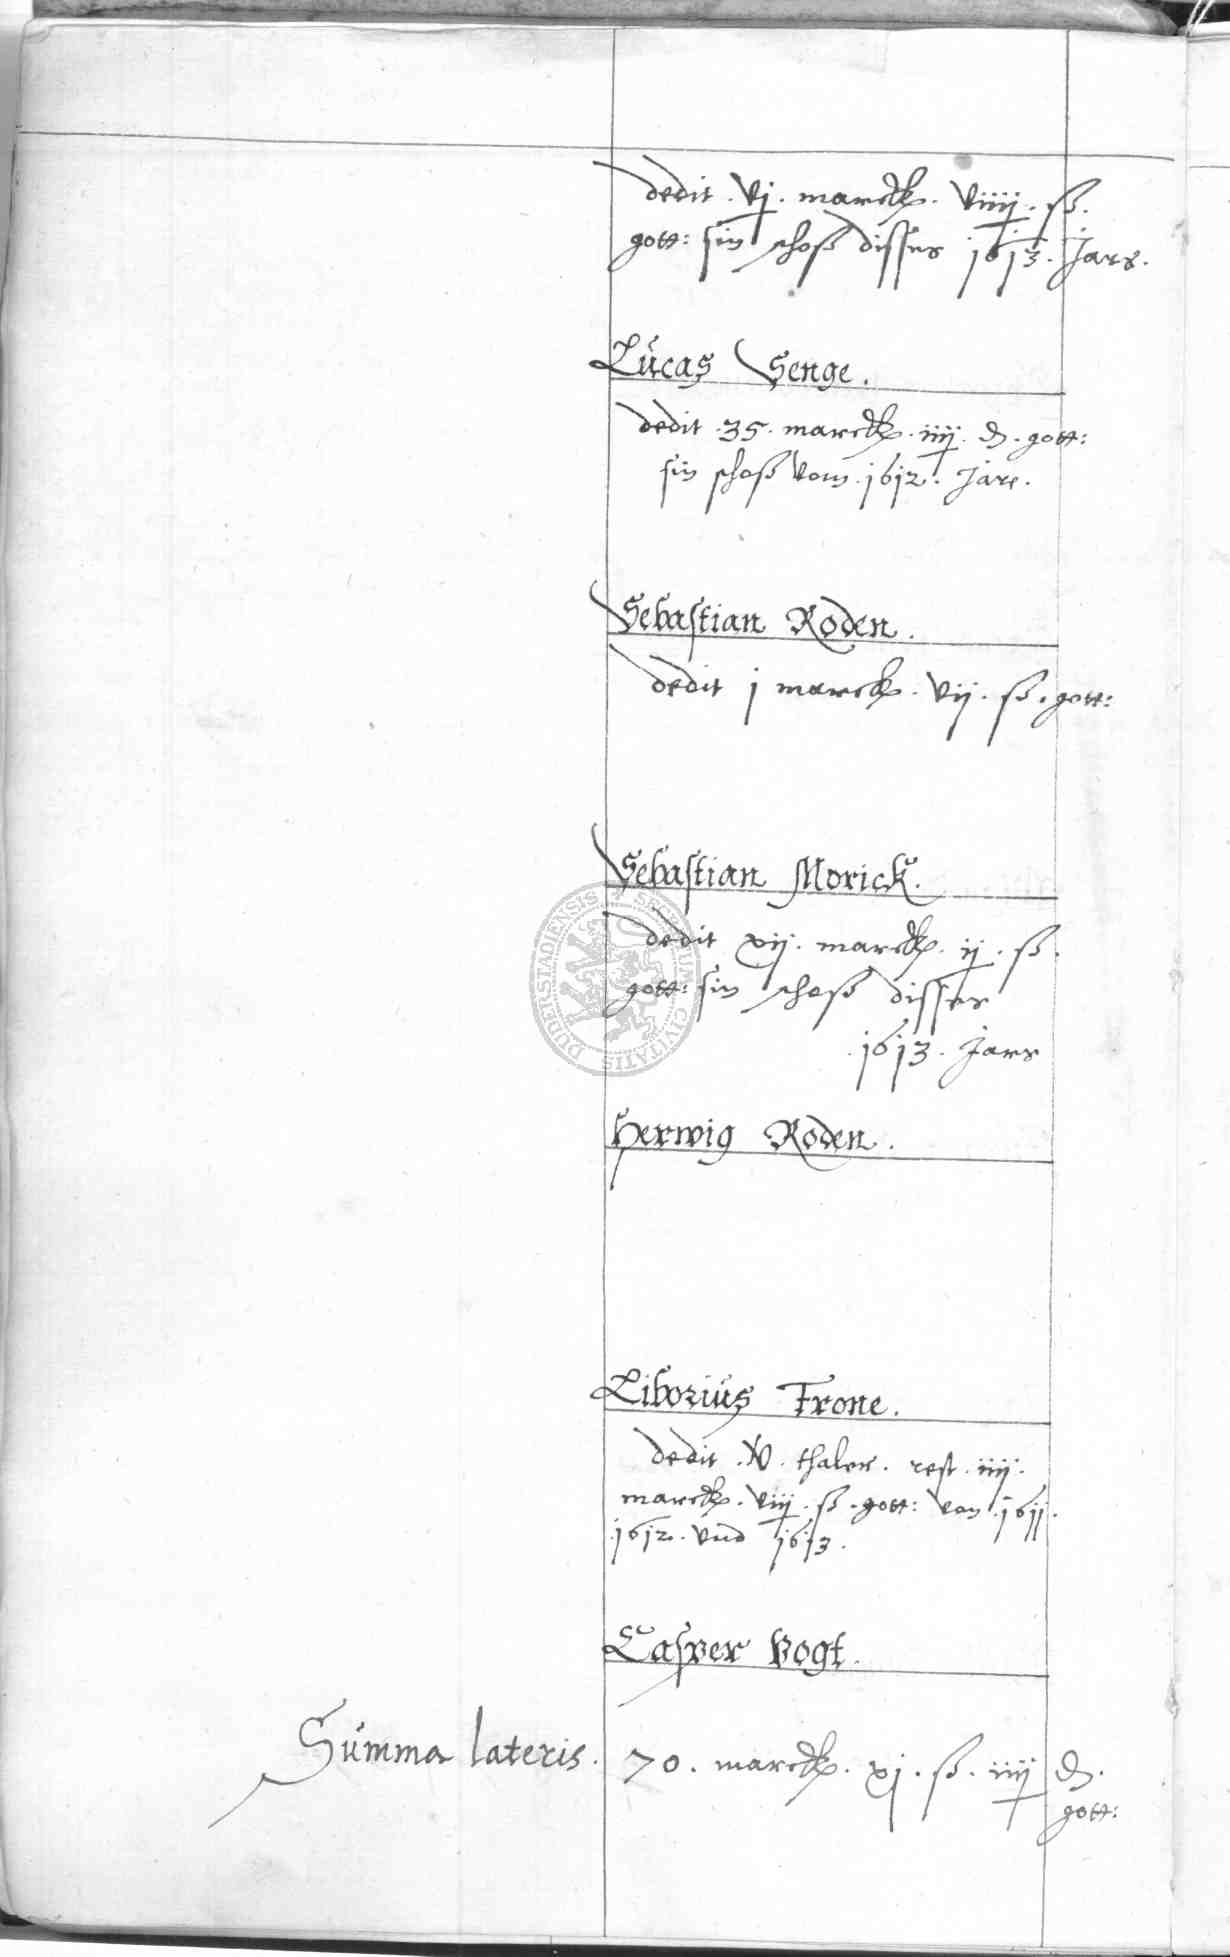 dedit . vj . marck . viiij . ß .
gott: sin schoß disses 1613 . Jars .
Lucas Senge .
dedit . 35 . marck . iiij . ₰ . gott:
sin schoß vom . 1612 . Jare .
Sebastian Roden .
dedit j marck . vij . ß . gott:
Sebastian Morick .
dedit xij . marck . ij . ß .
gott: sin schoß disses
. 1613 . Jars
Herwig Roden .
Liborius Trone .
dedit . v . thaler . rest . iiij .
marck . viij . ß . gott: von . 1611 .
. 1612 . vnd 1613 .
Casper Vogt .
Summa lateris . 70 . marck . xj . ß . iiij ₰ .
gott:
SECRETUM CIVITATIS DUDERSTADIENSIS